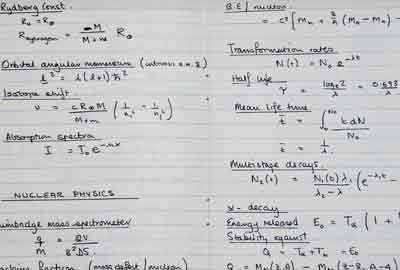 Rydberg Const.
R₀ = R∞
R_Hydrogen = M / (M + m) R∞
Orbital angular momentum
l² = l(l+1) ħ²
Isotope shift.
ν = c R∞ M / (M+m) ( 1/n₁² - 1/n₂² )
Absorption spectra
I = I₀ e
NUCLEAR PHYSICS
mass spectrometer
q/m = 2V / B²
fraction (mass defect / nucleon)
B.E / nucleon
= c² [ Mn + Z/A (MH - Mn) -
Transformation rates.
N(t) = N₀ e^-λt
Half life
τ = logₑ2 / λ = 0.693 / λ
Mean life time
t̄ = ∫₀^N₀ t dN / N₀
t̄ = 1/λ
Multistage decays.
N₂(t) = N₁(0) λ₁ / (λ₂ - λ) ( e^-λ₁t -
α - decay
Energy released E₀ = Tα ( 1 +
Stability against
Q = Tα + Tb = E₀
Q = M (Z, A) - M (Z-2, A-4)